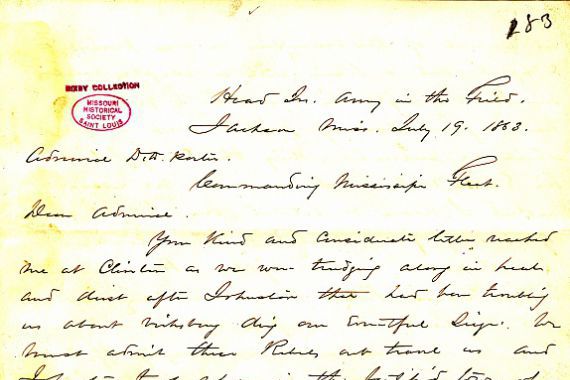 183
BIXBY COLLECTION
MISSOURI
HISTORICAL
SOCIETY
SAINT LOUIS
Head Qrs. Army in the Field,
Jackson Miss. July 19. 1863.
Admiral D.D. Porter.
Commanding Mississippi Fleet.
Dear Admiral.
Your Kind and Considerate letter reached
me at Clinton as we were trudging along in heat
and dust after Johnston that had been troubling
us about Vicksburg during our eventful Siege. We
must admit these Rebels out travel us and